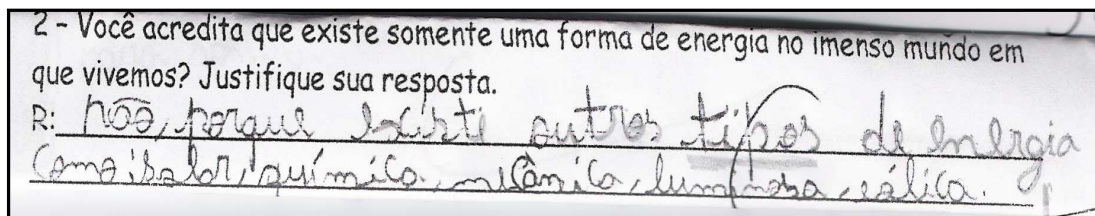 2 - Você acredita que existe somente uma forma de energia no imenso mundo em
que vivemos? Justifique sua resposta.
R: não, porque existi outros tipos de energia
como: solar, química, mecânica, luminosa, eólica.